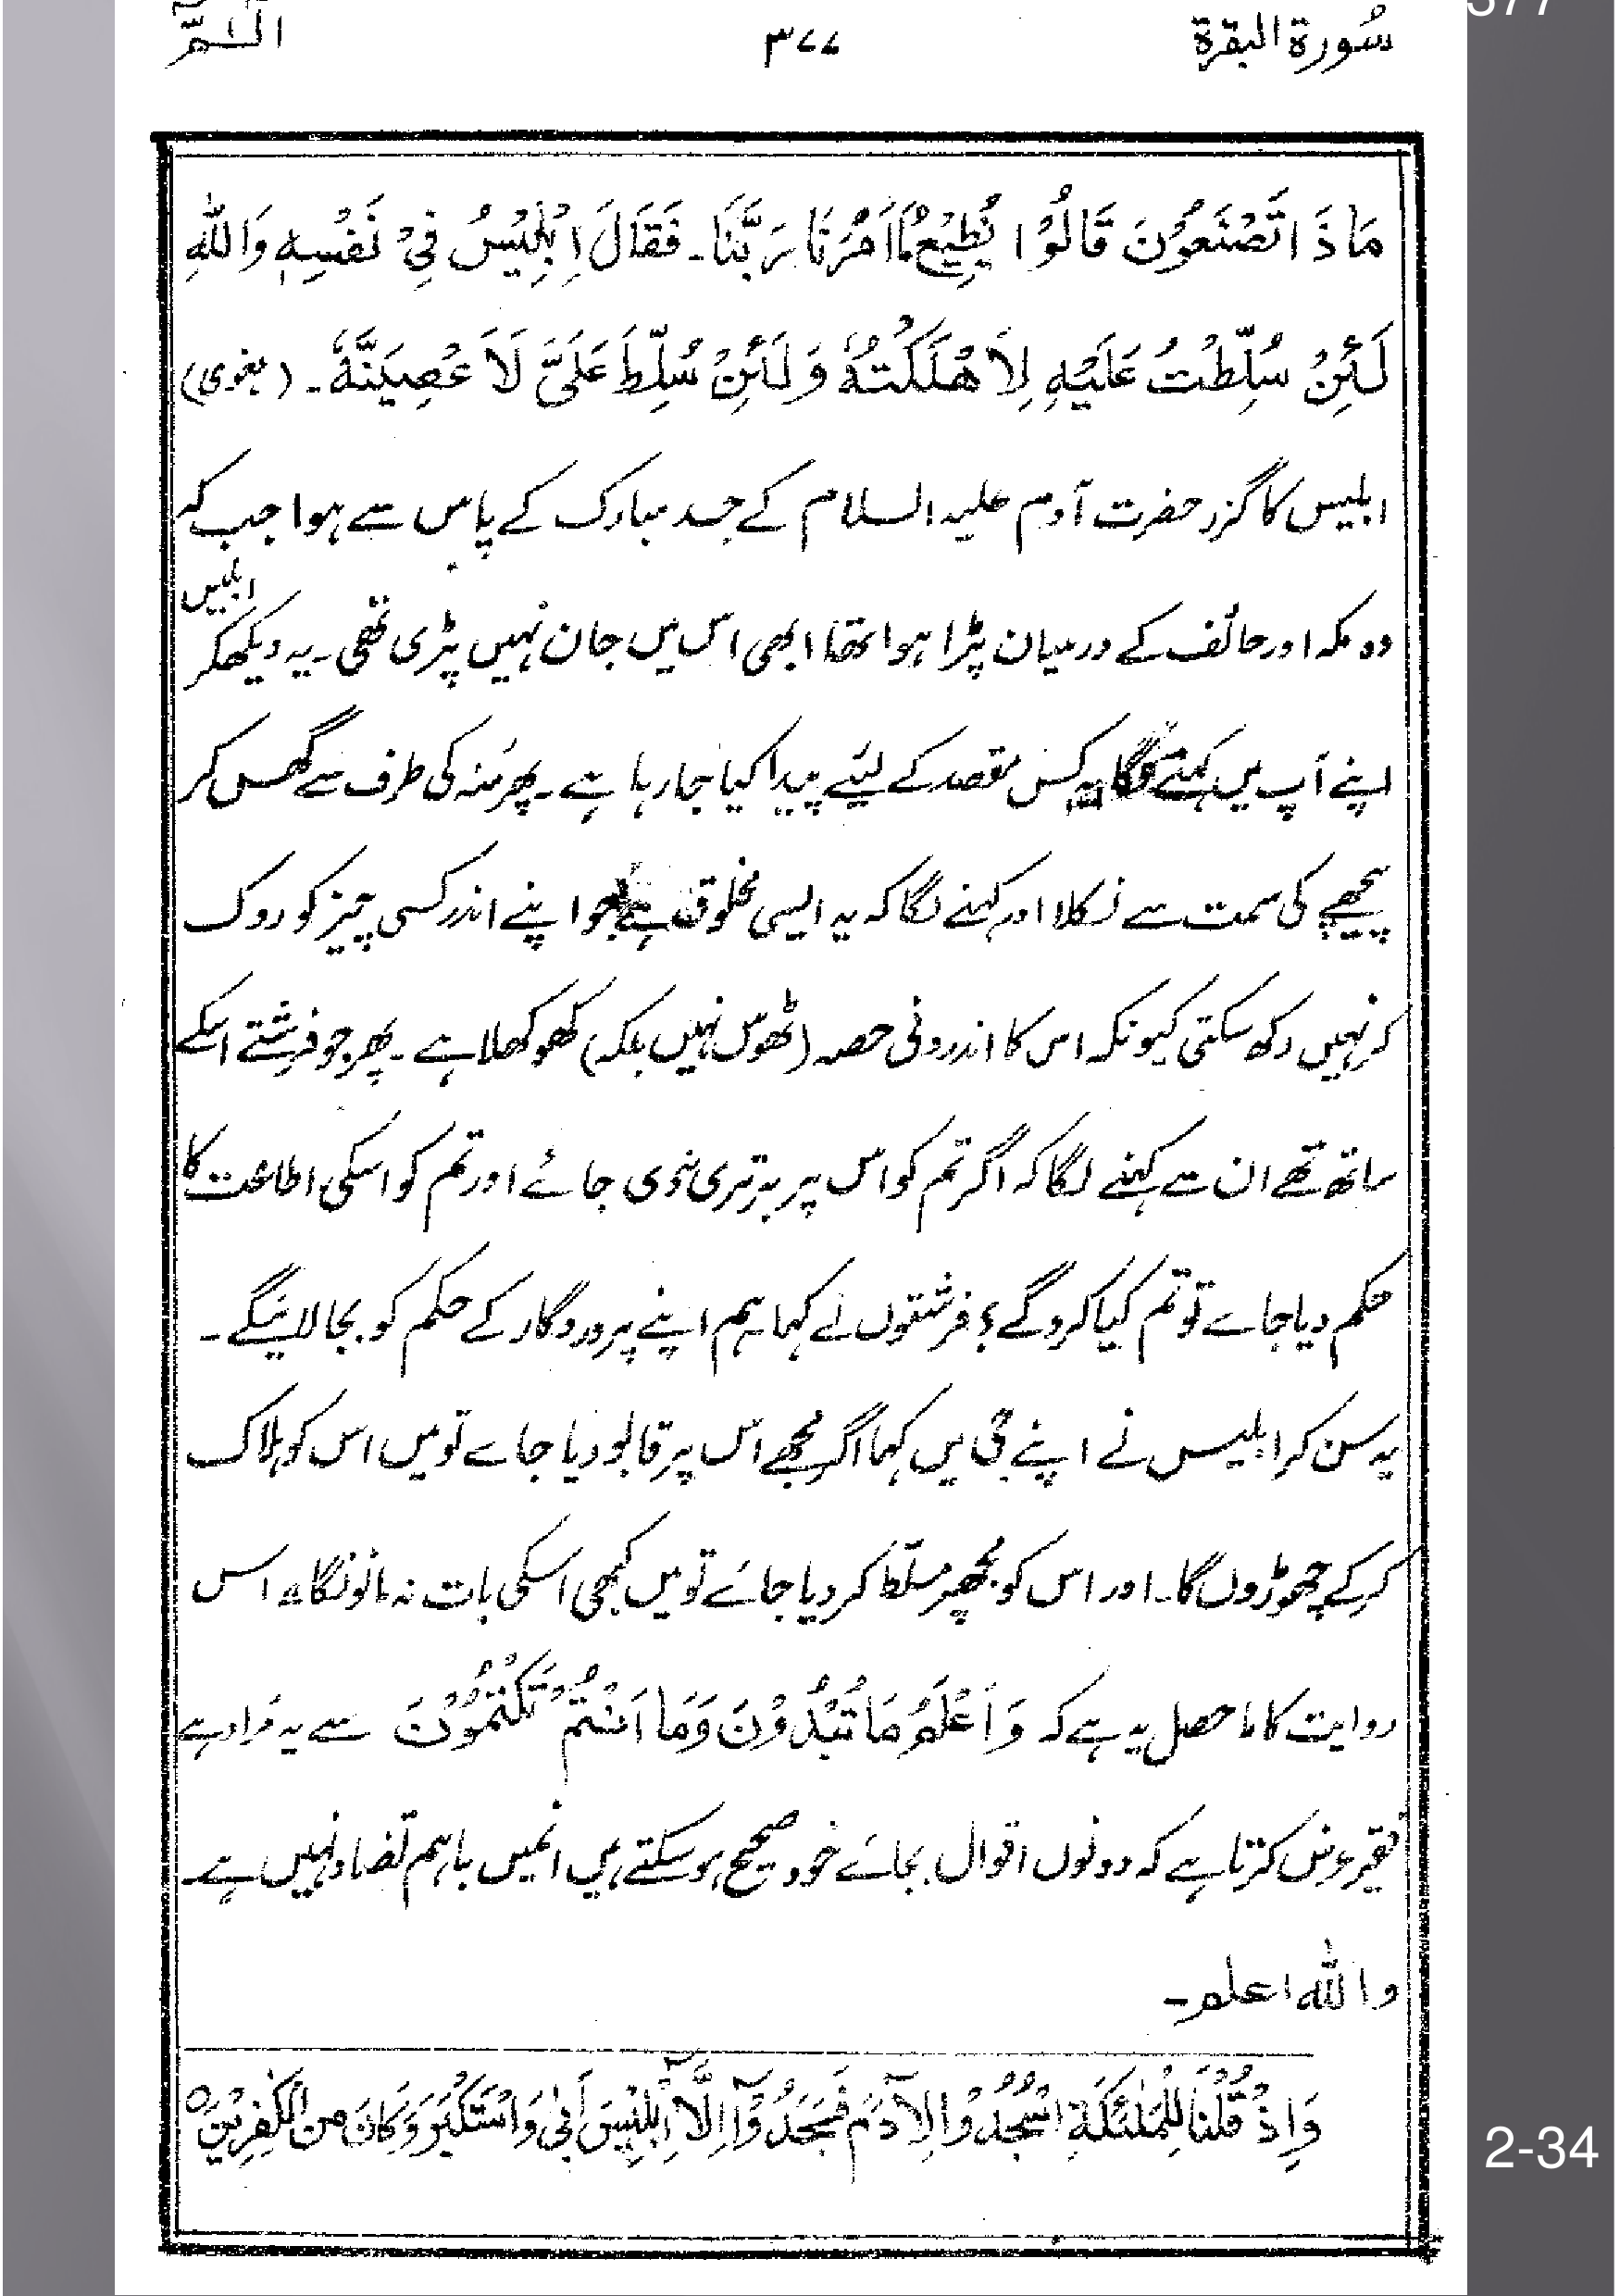 377
سُورة البقرة ٣٧٧ الٓـمّٓ
مَاذَا تَصْنَعُوْنَ قَالُوْا نُطِيْعُ مَا اَمَرَنَا رَبُّنَا۔ فَقَالَ اِبْلِيْسُ فِىْ نَفْسِهٖ وَاللهِ
لَئِنْ سُلِّطْتُ عَلَيْهِ لِاَهْلَكْتُهٗ وَلَئِنْ سُلِّطَ عَلَىَّ لَاَعْصِيَنَّهٗ۔ (بغوی)
ابلیس کا گزر حضرت آدم علیہ السلام کے جسد مبارک کے پاس سے ہوا جب کہ
وہ مکہ اور طائف کے درمیان پڑا ہوا تھا ابھی اس میں جان نہیں پڑی تھی۔ یہ دیکھکر ابلیس
اپنے آپ میں کہنے لگا یہ کس مقصد کے لیئے پیدا کیا جا رہا ہے۔ پھر مُنہ کی طرف سے گھس کر
پیچھے کی سمت سے نکلا اور کہنے لگا کہ یہ ایسی مخلوق ہے جو اپنے اندر کسی چیز کو روک
کر نہیں رکھ سکتی کیونکہ اس کا اندرونی حصہ (ٹھوس نہیں بلکہ) کھوکھلا ہے۔ پھر جو فرشتے اسکے
ساتھ تھے ان سے کہنے لگا کہ اگر تم کو اس پر برتری نہ دی جائے اور تم کو اسکی اطاعت کا
حکم دیا جاے تو تم کیا کرو گے؟ فرشتوں نے کہا ہم اپنے پروردگار کے حکم کو بجا لائینگے۔
یہ سن کر ابلیس نے اپنے جی میں کہا اگر مجھے اس پر قابو دیا جاے تو میں اس کو ہلاک
کر کے چھوڑوں گا۔ اور اس کو مجھپر مسلّط کر دیا جائے تو میں کبھی اسکی بات نہ مانونگا، اس
روایت کا ماحصل یہ ہے کہ وَاَعْلَمُ مَا تُبْدُوْنَ وَمَا اَنْتُمْ تَكْتُمُوْنَ سے یہ مُراد ہے
فقیر عرض کرتا ہے کہ دونوں اقوال بجائے خود صحیح ہو سکتے ہیں انمیں باہم تضاد نہیں ہے۔
واللہ اعلم۔
وَاِذْ قُلْنَا لِلْمَلٰٓئِكَةِ اسْجُدُوْا لِاٰدَمَ فَسَجَدُوْٓا اِلَّآ اِبْلِيْسَ اَبٰى وَاسْتَكْبَرَ وَكَانَ مِنَ الْكٰفِرِيْنَ ○
2-34